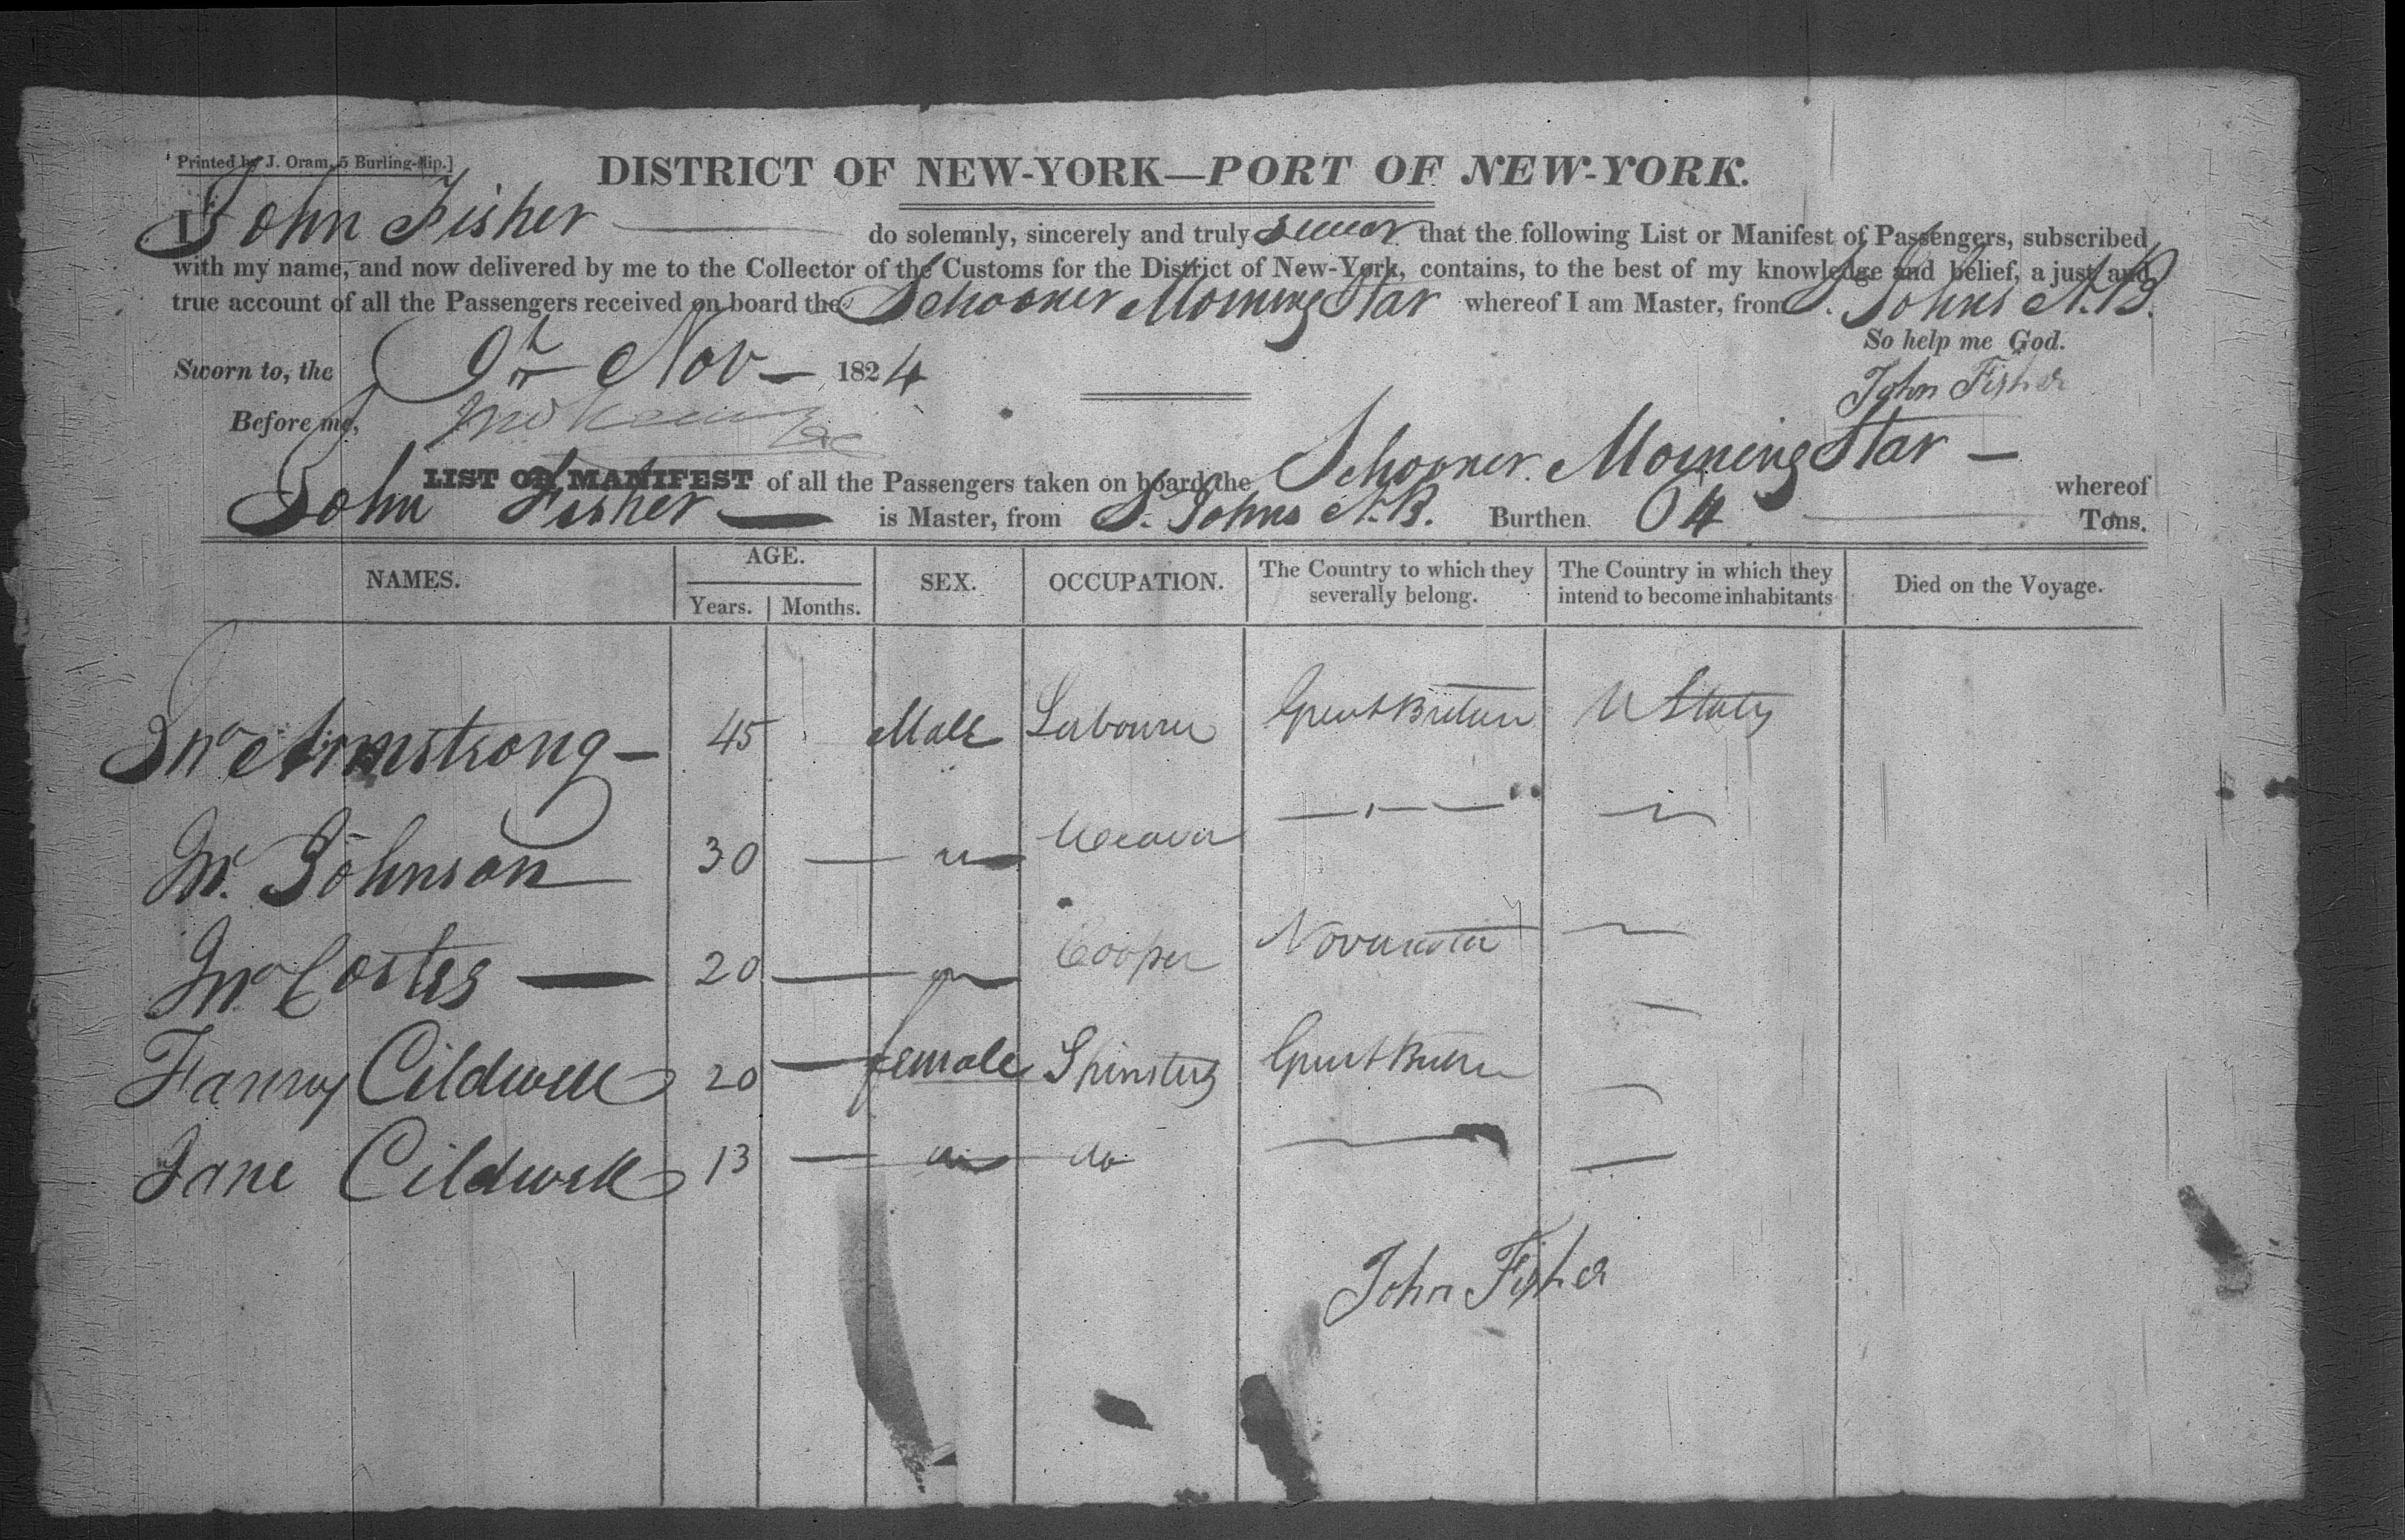 Printed by J. Oram, 5 Burling-slip.]
DISTRICT OF NEW-YORK—PORT OF NEW-YORK.
I John Fisher do solemnly, sincerely and truly swear that the following List or Manifest of Passengers, subscribed
with my name, and now delivered by me to the Collector of the Customs for the District of New-York, contains, to the best of my knowledge and belief, a just and
true account of all the Passengers received on board the Schooner Morning Star whereof I am Master, from S. Johns N.B.
So help me God.
Sworn to, the 9th Nov — 1824
John Fisher
Before me,
LIST OR MANIFEST of all the Passengers taken on board the Schooner Morning Star — whereof
John Fisher — is Master, from S. Johns N.B. Burthen 04 Tons.
NAMES. AGE. SEX. OCCUPATION. The Country to which they severally belong. The Country in which they intend to become inhabitants Died on the Voyage.
Years. Months.
Jno Armstrong — 45 Male Labourer Great Britain U States
Johnson 30 — " Weaver — " —
Costes — 20 — " Cooper Novascotia —
Fanny Cildwell 20 — female Spinster Great Britain —
Jane Cildwell 13 — " do — —
John Fisher